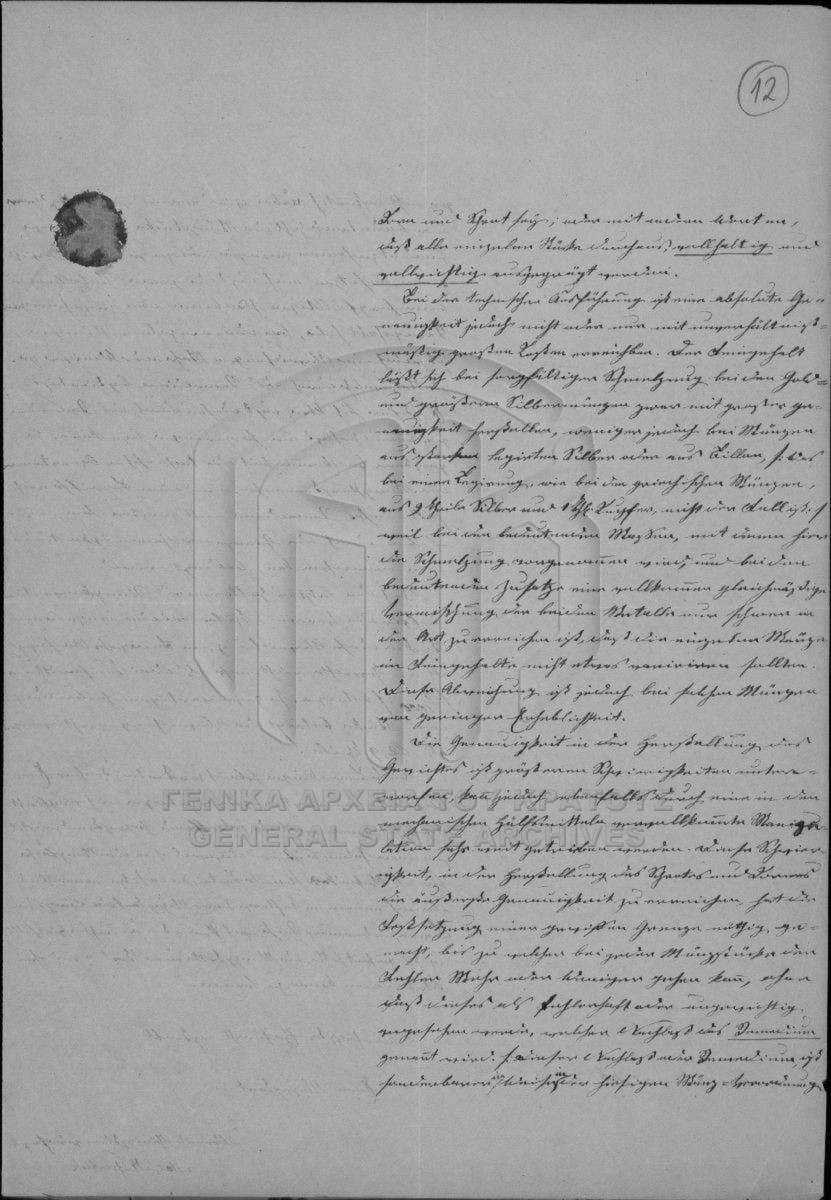 12
Korn und Schrot sey; oder mit andern Worten,
daß alle einzelnen Stücke durchaus vollhaltig und
vollwichtig ausgeprägt werden.
Bei der technischen Ausführung ist eine absolute Ge-
nauigkeit jedoch nicht oder nur mit unverhältniß-
mäßig großen Kosten erreichbar. Der Feingehalt
läßt sich bei sorgfältiger Schmelzung bei den Gold-
und größeren Silbermünzen zwar mit großer Ge-
nauigkeit herstellen, weniger jedoch bei Münzen
aus legirten Silber oder aus Billon, /: was
bei einer Legirung, wie bei den griechischen Münzen,
aus 9 Theile Silber und 1 Thl. Kupfer, nicht der Fall ist :/
weil bei den bedeutenden Massen, mit denen hier
die Schmelzung vorgenommen wird, und bei dem
bedeutenden Zusatze eine vollkommen gleichmäßige
Vermischung der beiden Metalle nur schwer in
der Art zu erreichen ist, daß die einzelnen Münzen
im Feingehalte nicht etwas variiren sollten.
Diese Abweichung ist jedoch bei solchen Münzen
von geringer Erheblichkeit.
Die Genauigkeit in der Herstellung des
Gewichtes ist größeren Schwierigkeiten unter-
worfen, kann jedoch ebenfalls durch eine in den
mechanischen Hülfsmitteln vervollkommte Manipu-
lation sehr weit getrieben werden. Diese Schwier-
igkeit, in der Herstellung des Schrotes und Kornes
die äußerste Genauigkeit zu erreichen, hat die
Festsetzung einer gewissen Grenze nöthig ge-
macht, bis zu welcher bei jedem Münzstücke der
Fehler Mehr oder Weniger gehen kann, ohne
daß dieses als fehlerhaft oder ungewichtig
angesehen werde, welcher Nachlaß das Remedium
genannt wird. /: dieser Nachlaß oder Remedium, ist
sonderbarer Weise in der hiesigen Münz-Verordnung
ΓΕΝΙΚΑ ΑΡΧΕΙΑ ΤΟΥ ΚΡΑΤΟΥΣ
GENERAL STATE ARCHIVES